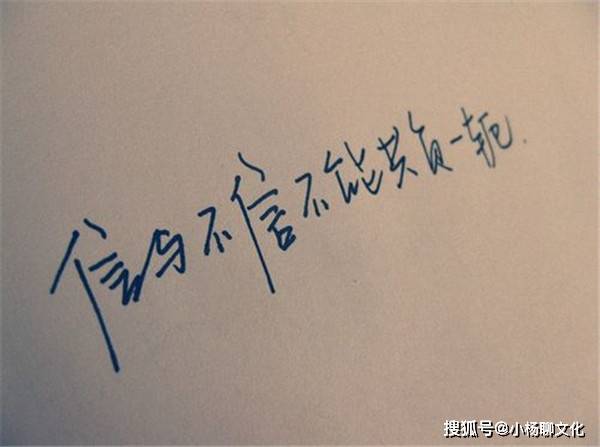 信与不信不能共负一轭.
搜狐号@小杨聊文化